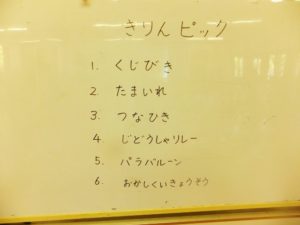 きりんピック
1. くじびき
2. たまいれ
3. つなひき
4. じどうしゃリレー
5. パラバルーン
6. おかしくいきょうそう